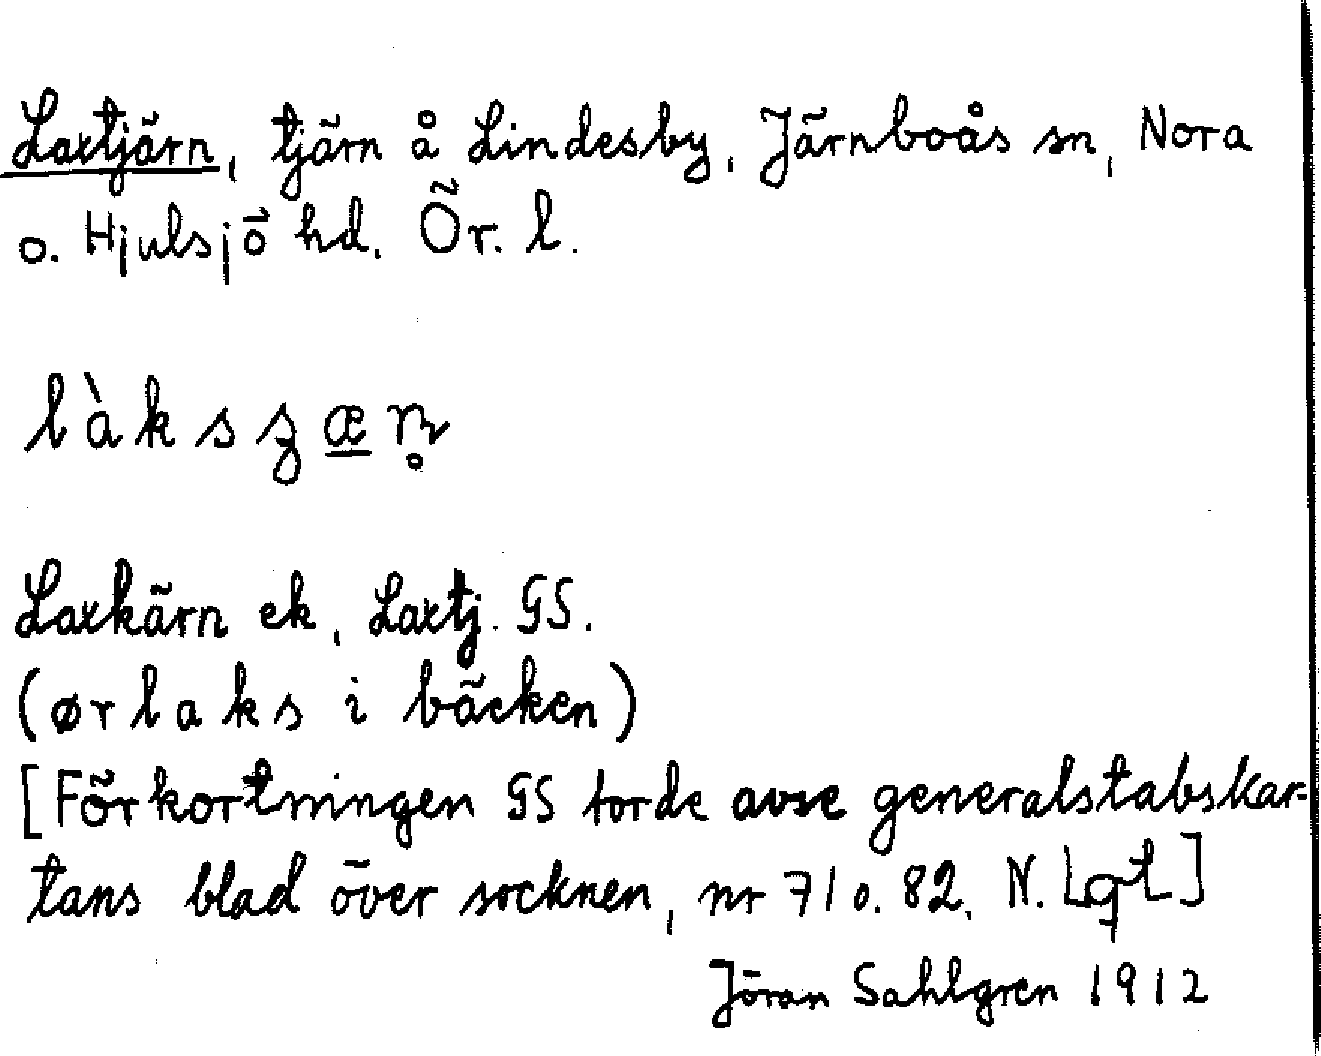 Laxtjärn, tjärn å Lindesby, Järnboås sn, Nora
o. Hjulsjö hd. Ör. l.
làksʒæ̲n̥
Laxkärn ek, Laxtj. GS.
(ørlaks i bäcken)
[Förkortningen GS torde avse generalstabskar-
tans blad över socknen, nr 71 o. 82. N. Lgt]
Jöran Sahlgren 1912